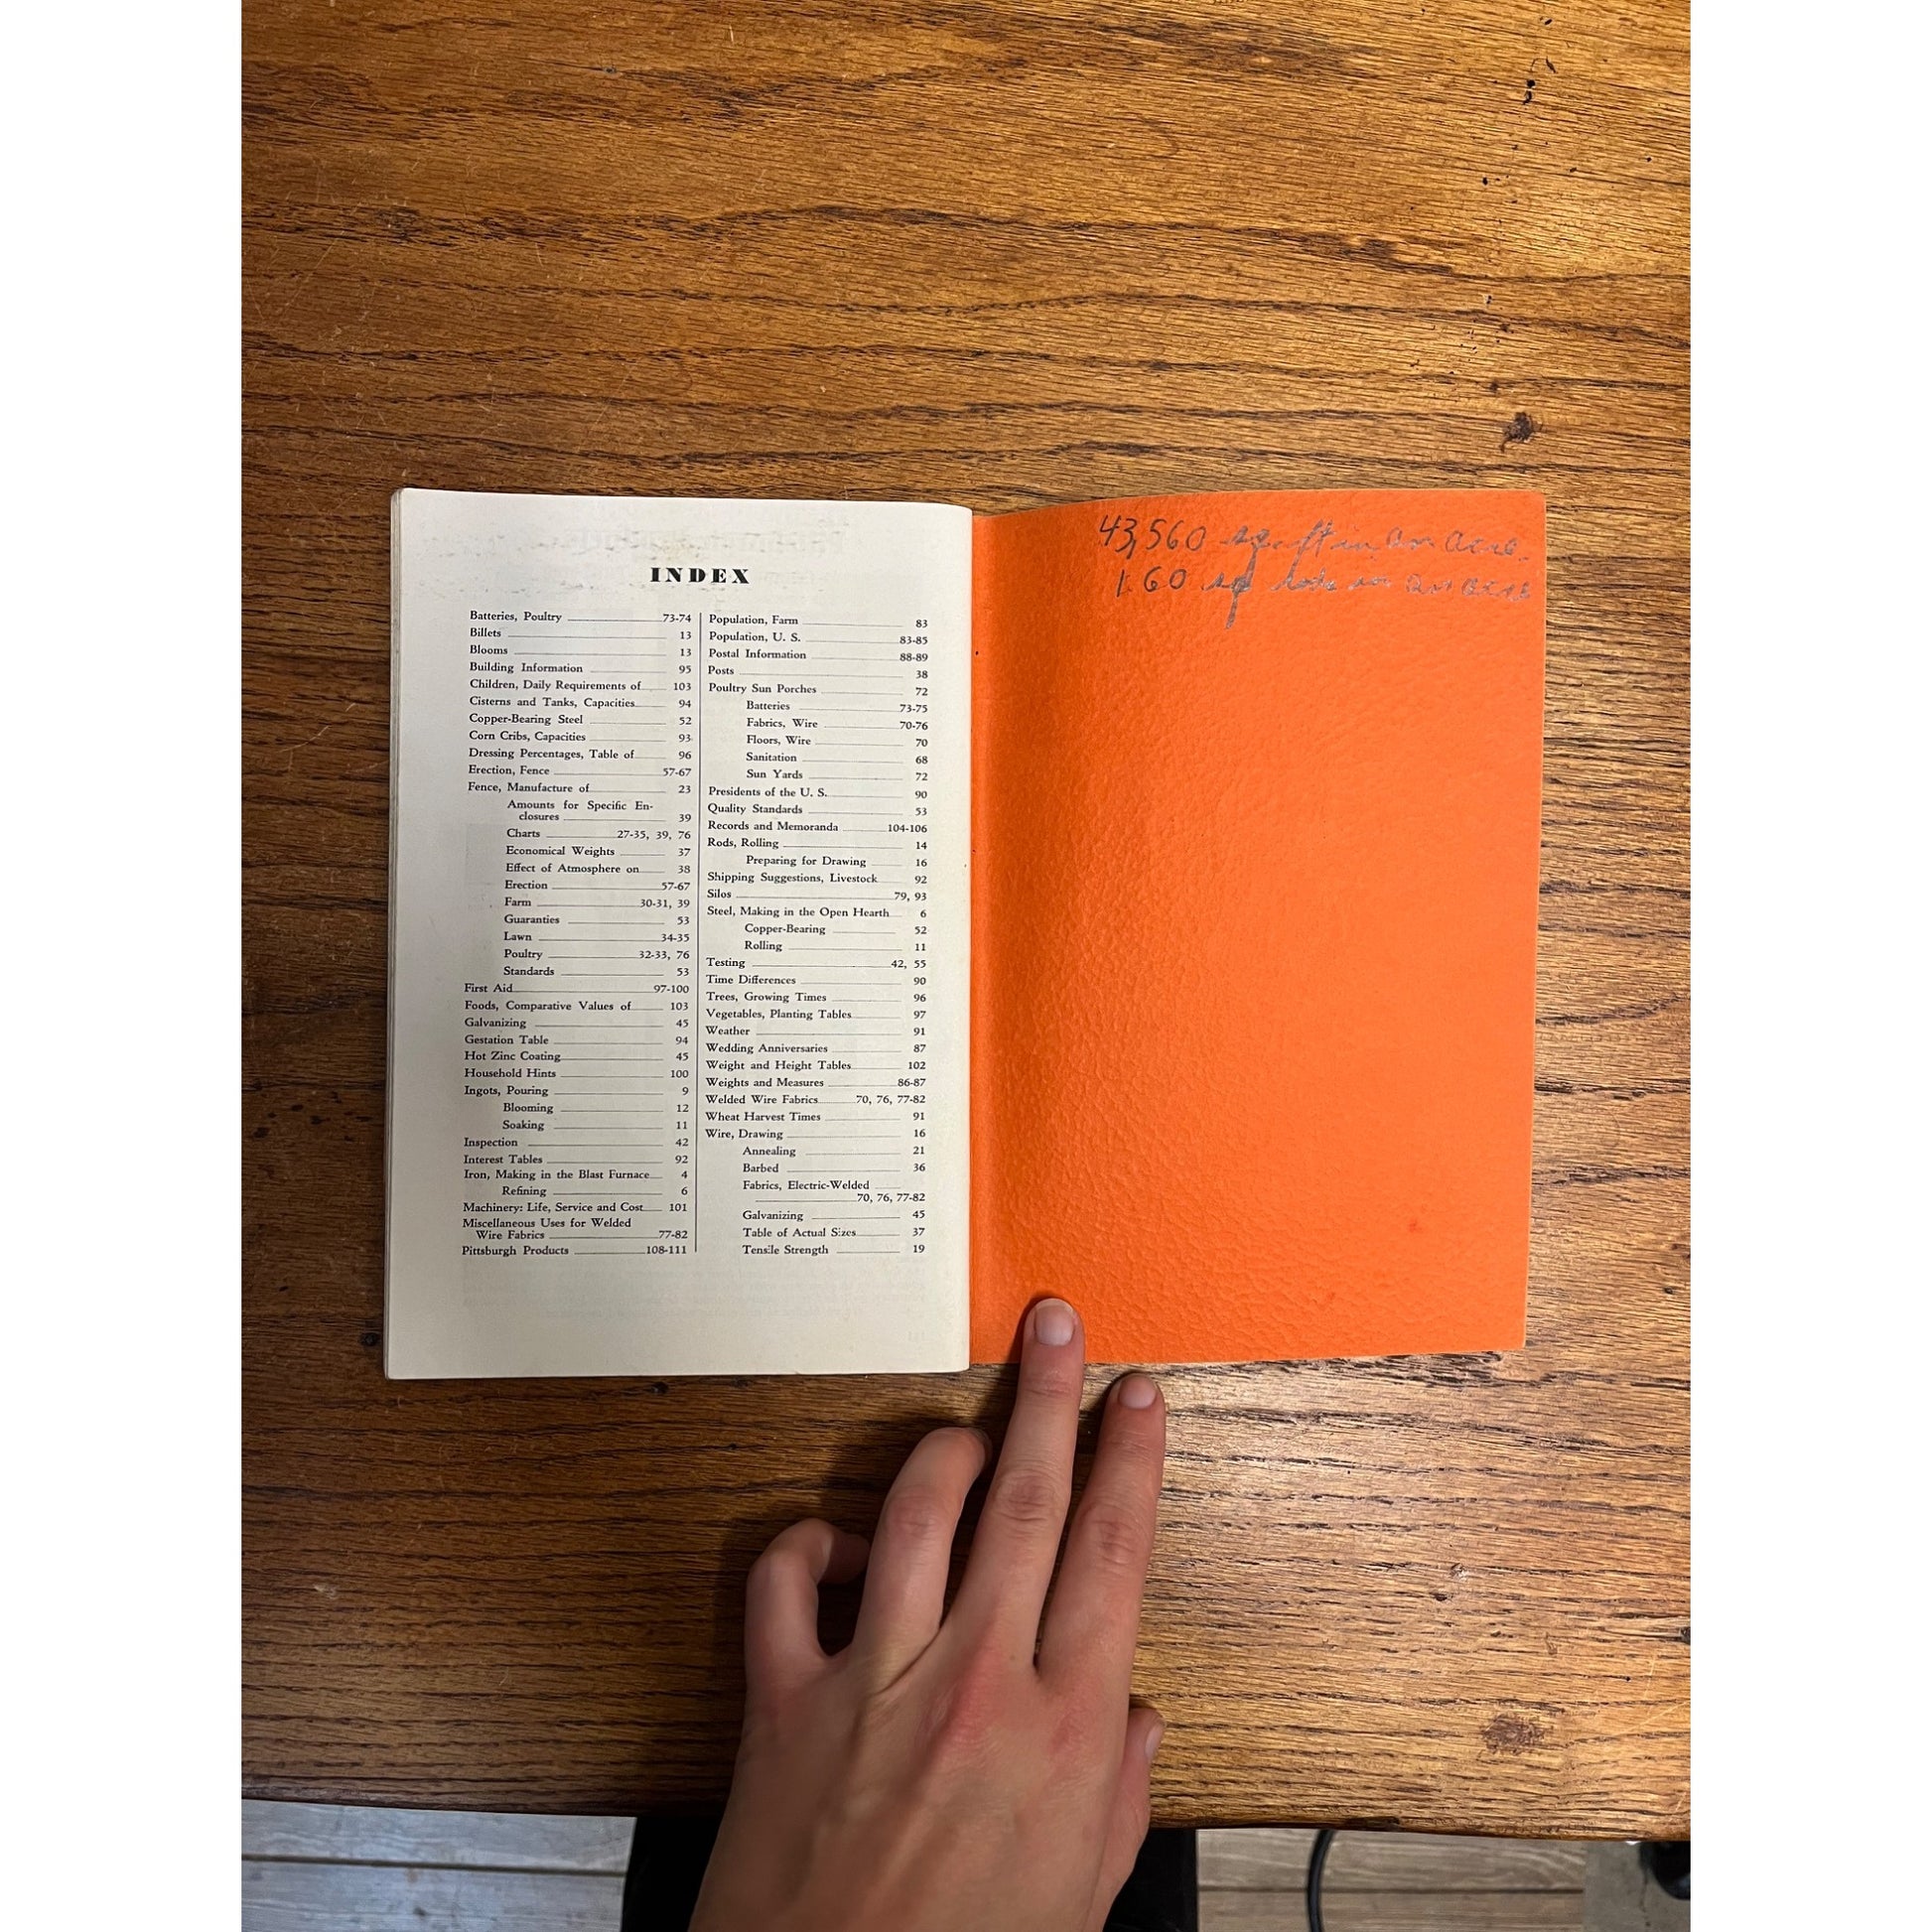 INDEX
Batteries, Poultry 73-74
Billets 13
Blooms 13
Building Information 95
Children, Daily Requirements of 103
Cisterns and Tanks, Capacities 94
Copper-Bearing Steel 52
Corn Cribs, Capacities 93
Dressing Percentages, Table of 96
Erection, Fence 57-67
Fence, Manufacture of 23
Amounts for Specific En-
closures 39
Charts 27-35, 39, 76
Economical Weights 37
Effect of Atmosphere on 38
Erection 57-67
Farm 30-31, 39
Guaranties 53
Lawn 34-35
Poultry 32-33, 76
Standards 53
First Aid 97-100
Foods, Comparative Values of 103
Galvanizing 45
Gestation Table 94
Hot Zinc Coating 45
Household Hints 100
Ingots, Pouring 9
Blooming 12
Soaking 11
Inspection 42
Interest Tables 92
Iron, Making in the Blast Furnace 4
Refining 6
Machinery: Life, Service and Cost 101
Miscellaneous Uses for Welded
Wire Fabrics 77-82
Pittsburgh Products 108-111
Population, Farm 83
Population, U. S. 83-85
Postal Information 88-89
Posts 38
Poultry Sun Porches 72
Batteries 73-75
Fabrics, Wire 70-76
Floors, Wire 70
Sanitation 68
Sun Yards 72
Presidents of the U. S. 90
Quality Standards 53
Records and Memoranda 104-106
Rods, Rolling 14
Preparing for Drawing 16
Shipping Suggestions, Livestock 92
Silos 79, 93
Steel, Making in the Open Hearth 6
Copper-Bearing 52
Rolling 11
Testing 42, 55
Time Differences 90
Trees, Growing Times 96
Vegetables, Planting Tables 97
Weather 91
Wedding Anniversaries 87
Weight and Height Tables 102
Weights and Measures 86-87
Welded Wire Fabrics 70, 76, 77-82
Wheat Harvest Times 91
Wire, Drawing 16
Annealing 21
Barbed 36
Fabrics, Electric-Welded
70, 76, 77-82
Galvanizing 45
Table of Actual Sizes 37
Tensile Strength 19
43,560 sq ft in an acre.
160 sq rods in an acre